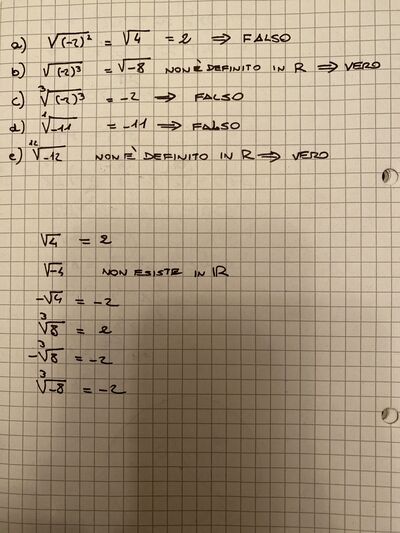 a) √(-2)² = √4 = 2 ⇒ FALSO
b) √(-2)³ = √-8 NON È DEFINITO IN R ⇒ VERO
c) ³√(-2)³ = -2 ⇒ FALSO
d) ¹√-11 = -11 ⇒ FALSO
e) ¹²√-12 NON È DEFINITO IN R ⇒ VERO
√4 = 2
√-4 NON ESISTE IN ℝ
-√4 = -2
³√8 = 2
-³√8 = -2
³√-8 = -2